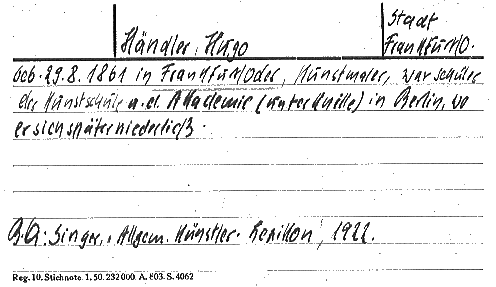 Stadt
Händler, Hugo Frankfurt/O.
geb. 29.8.1861 in Frankfurt/Oder, Kunstmaler, war Schüler
der Kunstschule u. d. Akademie (unter Knille) in Berlin, wo
er sich später niederließ.
Qu: Singer, Allgem. Künstler-Lexikon, 1922.
Reg. 10. Stichnote. 1. 50. 232 000. A. 803. S. 4062